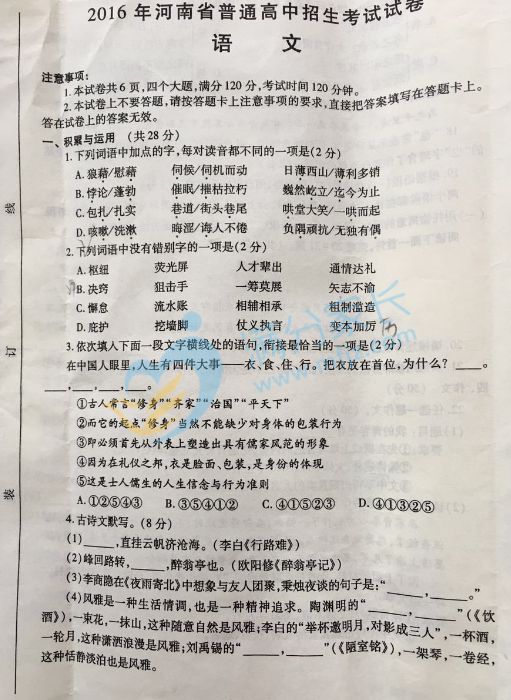 2016 年河南省普通高中招生考试试卷
语 文
注意事项:
1. 本试卷共 6 页,四个大题,满分 120 分,考试时间 120 分钟。
2. 本试卷上不要答题,请按答题卡上注意事项的要求,直接把答案填写在答题卡上。
答在试卷上的答案无效。
一、积累与运用 (共 28 分)
1. 下列词语中加点的字,每对读音都不同的一项是(2 分)
A. 狼藉/慰藉 伺候/伺机而动 日薄西山/薄利多销
B. 悖论/蓬勃 催眠/摧枯拉朽 巍然屹立/迄今为止
C. 包扎/扎实 巷道/街头巷尾 哄堂大笑/一哄而起
D. 咳嗽/洗漱 晦涩/诲人不倦 负隅顽抗/无独有偶
2. 下列词语中没有错别字的一项是(2 分)
A. 枢纽 荧光屏 人才辈出 通情达礼
B. 决窍 狙击手 一筹莫展 矢志不渝
C. 懈怠 流水账 相辅相承 粗制滥造
D. 庇护 挖墙脚 仗义执言 变本加厉
3. 依次填入下面一段文字横线处的语句,衔接最恰当的一项是(2 分)
在中国人眼里,人生有四件大事——衣、食、住、行。把衣放在首位,为什么? ____。
____,____,____,____。
①古人常言“修身”“齐家”“治国”“平天下”
②而它的起点“修身”当然不能缺少对身体的包装行为
③即必须首先从外表上塑造出具有儒家风范的形象
④因为在礼仪之邦,衣是脸面、包装,是身份的体现
⑤这是古人儒生的人生信念与行为准则
A. ①②⑤④③ B. ③⑤④①② C. ④①⑤②③ D. ④①③②⑤
4. 古诗文默写。(8 分)
(1)______,直挂云帆济沧海。(李白《行路难》)
(2)峰回路转,______,醉翁亭也。(欧阳修《醉翁亭记》)
(3)李商隐在《夜雨寄北》中想象与友人团聚,秉烛夜谈的句子是:“______,______。”
(4)风雅是一种生活情调,也是一种精神追求。陶渊明的“______,______”(《饮
酒》),一束花,一抹山,这种随意自然是风雅;李白的“举杯邀明月,对影成三人”,一杯酒,
一轮月,这种潇洒浪漫是风雅;刘禹锡的“______,______”(《陋室铭》),一架琴,一卷经,
这种恬静淡泊也是风雅。
线
订
装